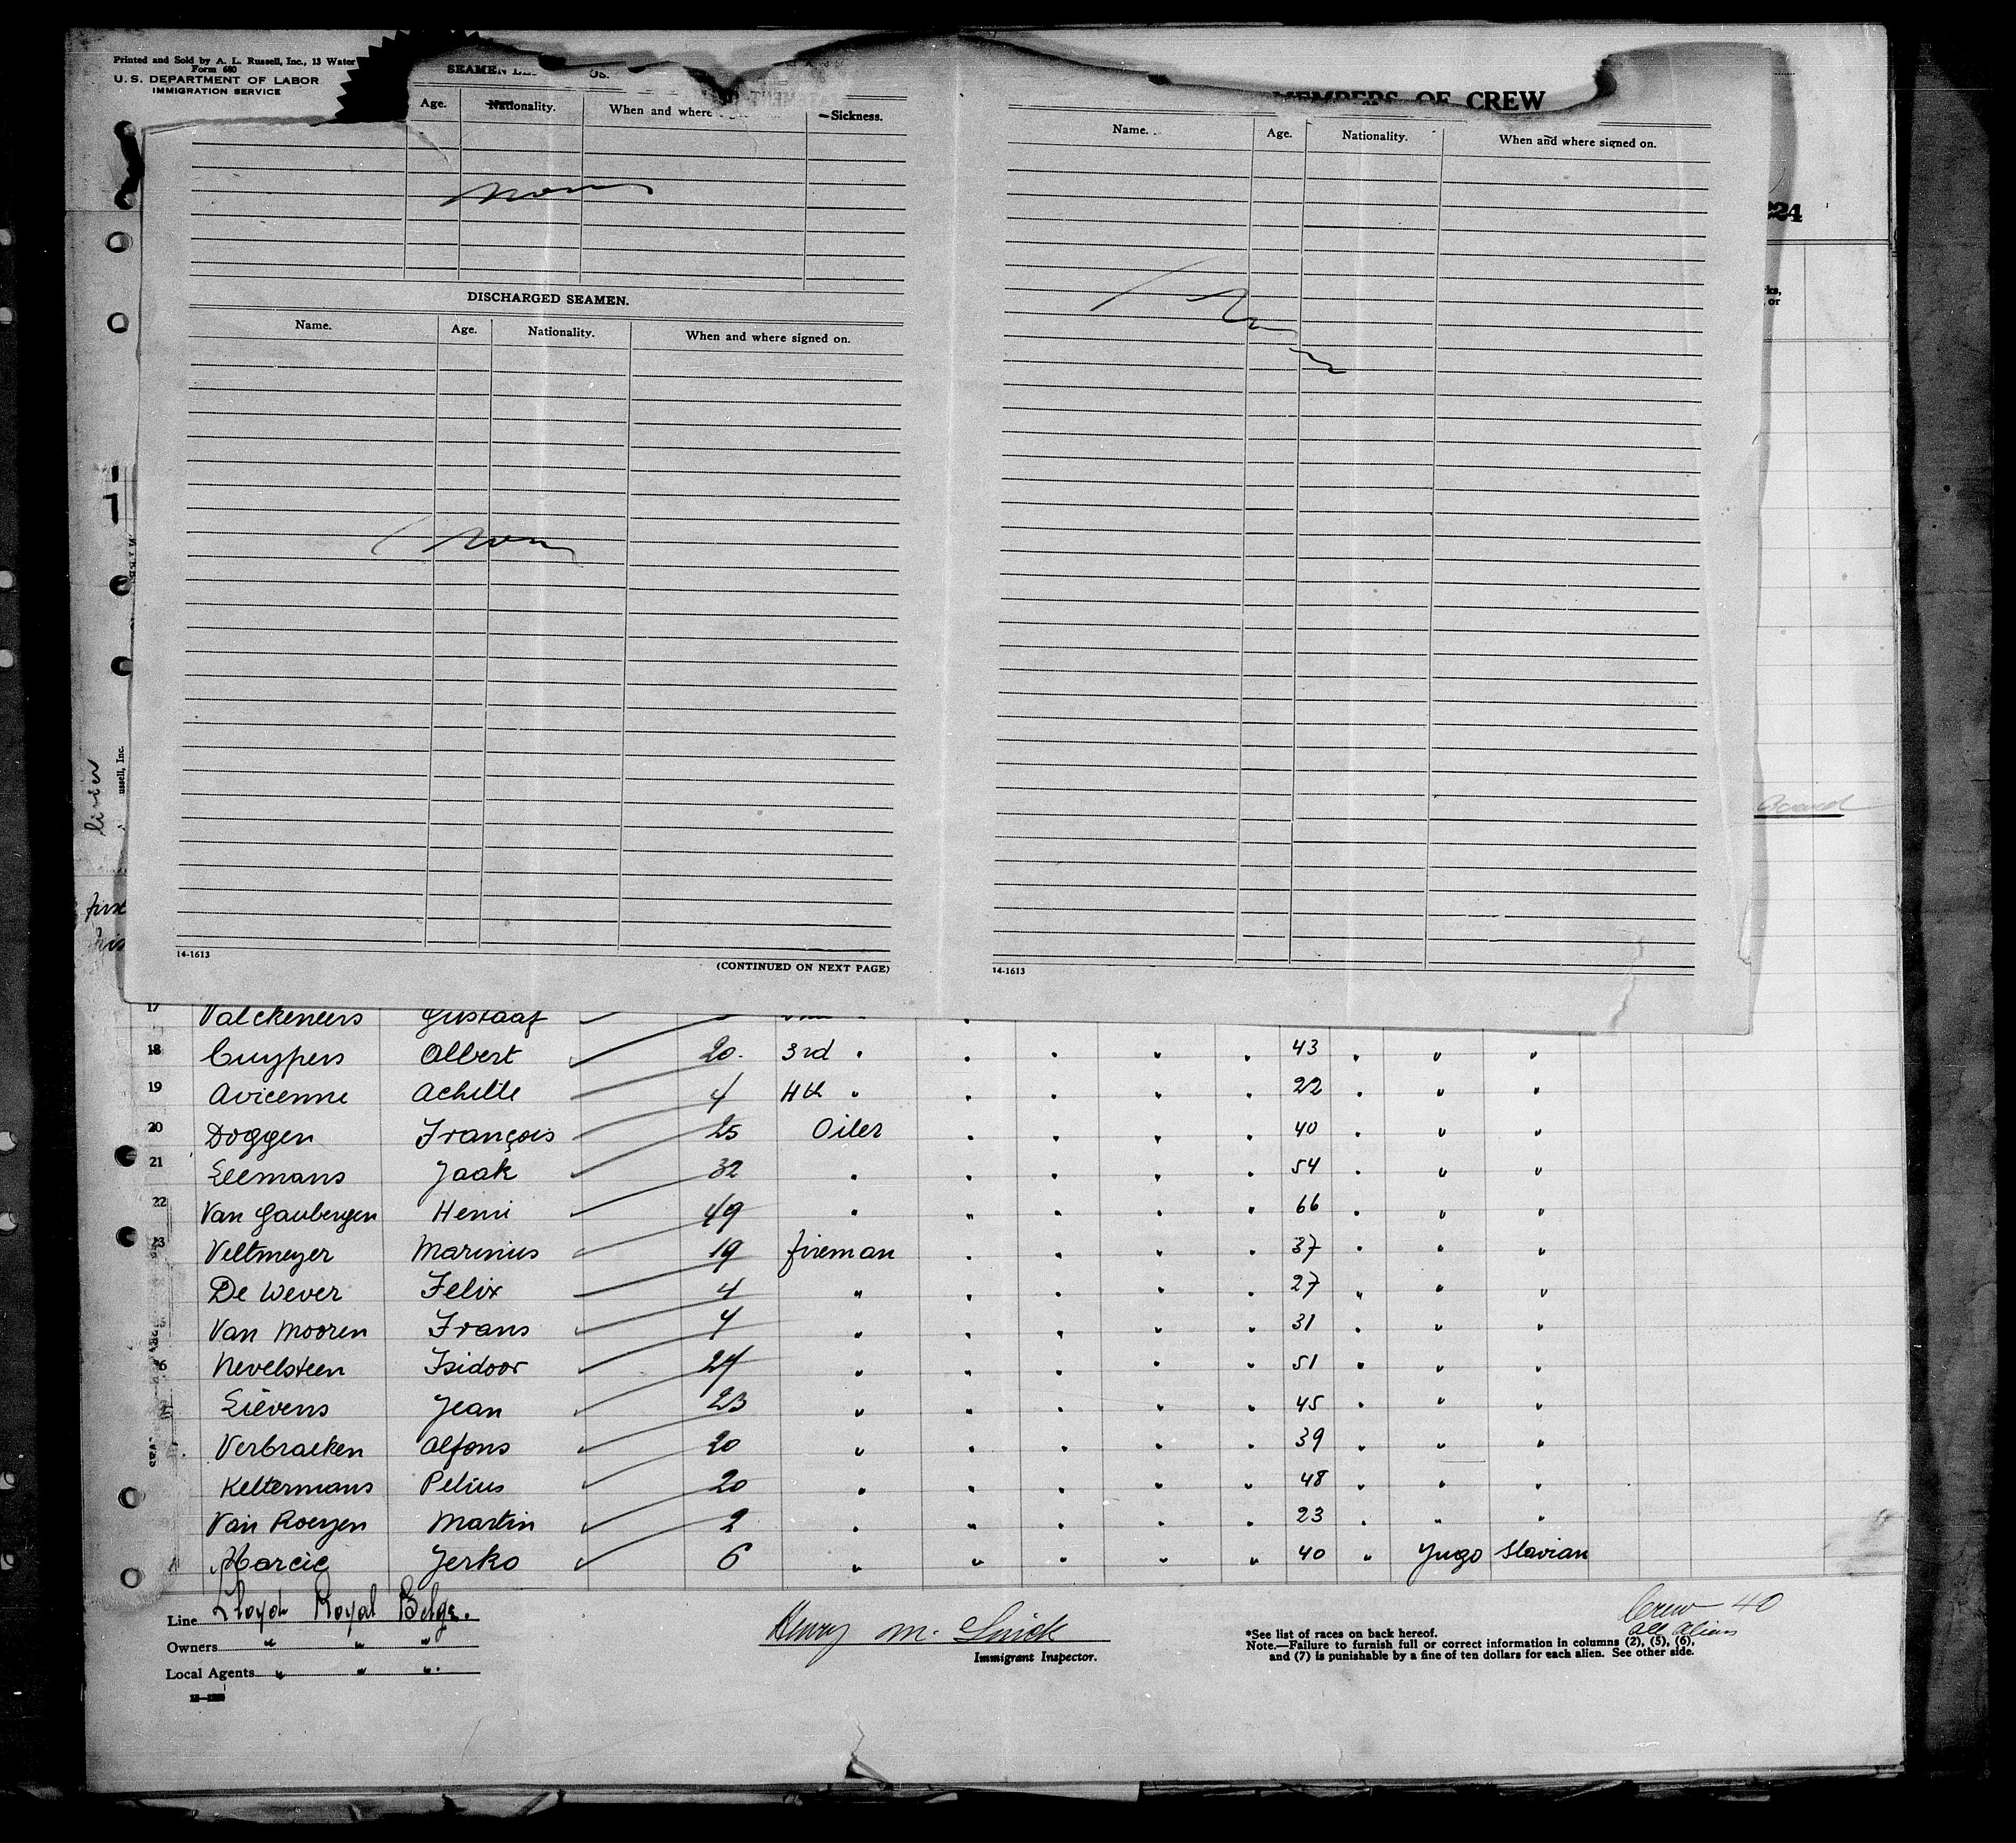 Printed and Sold by A. L. Russell, Inc., 13 Water
Form 680
U. S. DEPARTMENT OF LABOR
IMMIGRATION SERVICE
SEAMEN
Age. Nationality. When and where Sickness.
None
DISCHARGED SEAMEN.
Name. Age. Nationality. When and where signed on.
None
14-1613
(CONTINUED ON NEXT PAGE)
MEMBERS OF CREW
Name. Age. Nationality. When and where signed on.
14-1613
224
ks,
, or
ussell, Inc.
first
17 Valckeneers Gustaaf
18 Cuypers Albert 20. 3rd " " " " " 43 " " "
19 Avicenne Achille 4 4th " " " " " 22 " " "
20 Doggen François 25 Oiler " " " " 40 " " "
21 Leemans Jaak 32 " " " " " 54 " " "
22 Van Gaubergen Henri 49 " " " " " 66 " " "
23 Veltmeyer Marinus 19 fireman " " " " 37 " " "
De Wever Felix 4 " " " " " 27 " " "
Van Mooren Frans 4 " " " " " 31 " " "
6 Nevelsteen Isidoor 24 " " " " " 51 " " "
Lievens Jean 23 " " " " " 45 " " "
Verbraeken Alfons 20 " " " " " 39 " " "
Keltermans Pelius 20 " " " " " 48 " " "
Van Roeyen Martin 2 " " " " " 23 " " "
Marcic Jerko 6 " " " " " 40 " Yugo Slavian
Line Lloyd Royal Belge.
Owners " " "
Local Agents " " "
Henry M.
Immigrant Inspector.
Crew 40
all aliens
*See list of races on back hereof.
Note.—Failure to furnish full or correct information in columns (2), (5), (6),
and (7) is punishable by a fine of ten dollars for each alien. See other side.